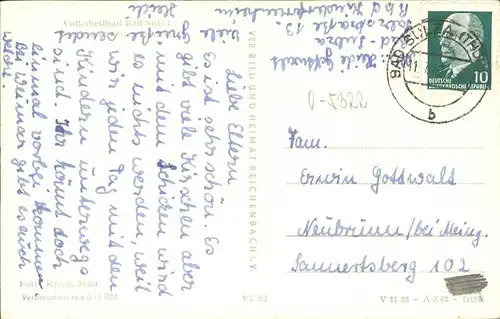 Volksheilbad Bad Sulza
Liebe Eltern
Es ist sehr schön. Es
gibt viel Kirschen aber
mit dem Schicken wird
es nichts werden, weil
wir jeden Tag mit den
Kindern unterwegs
sind. Ihr könnt doch
einmal vorbei kommen
Bei Weimar gibt es euch
welche.
Viele
Grüße sendet
Heidi
Heidi Gottwalt
Bad-Sulza
straße 13
Kinderferienheim
VEB BILD UND HEIMAT REICHENBACH I. V.
BAD SULZA
b
DEUTSCHE
DEMOKRATISCHE REPUBLIK
10
O-5322
Fam.
Erwin Gottwalt
Neubrunn/bei Meing.
Sannertsberg 102
Foto: Jena
Verbraucherpreis 0.15 DM
V 11 28 - A 2/62 - DDR